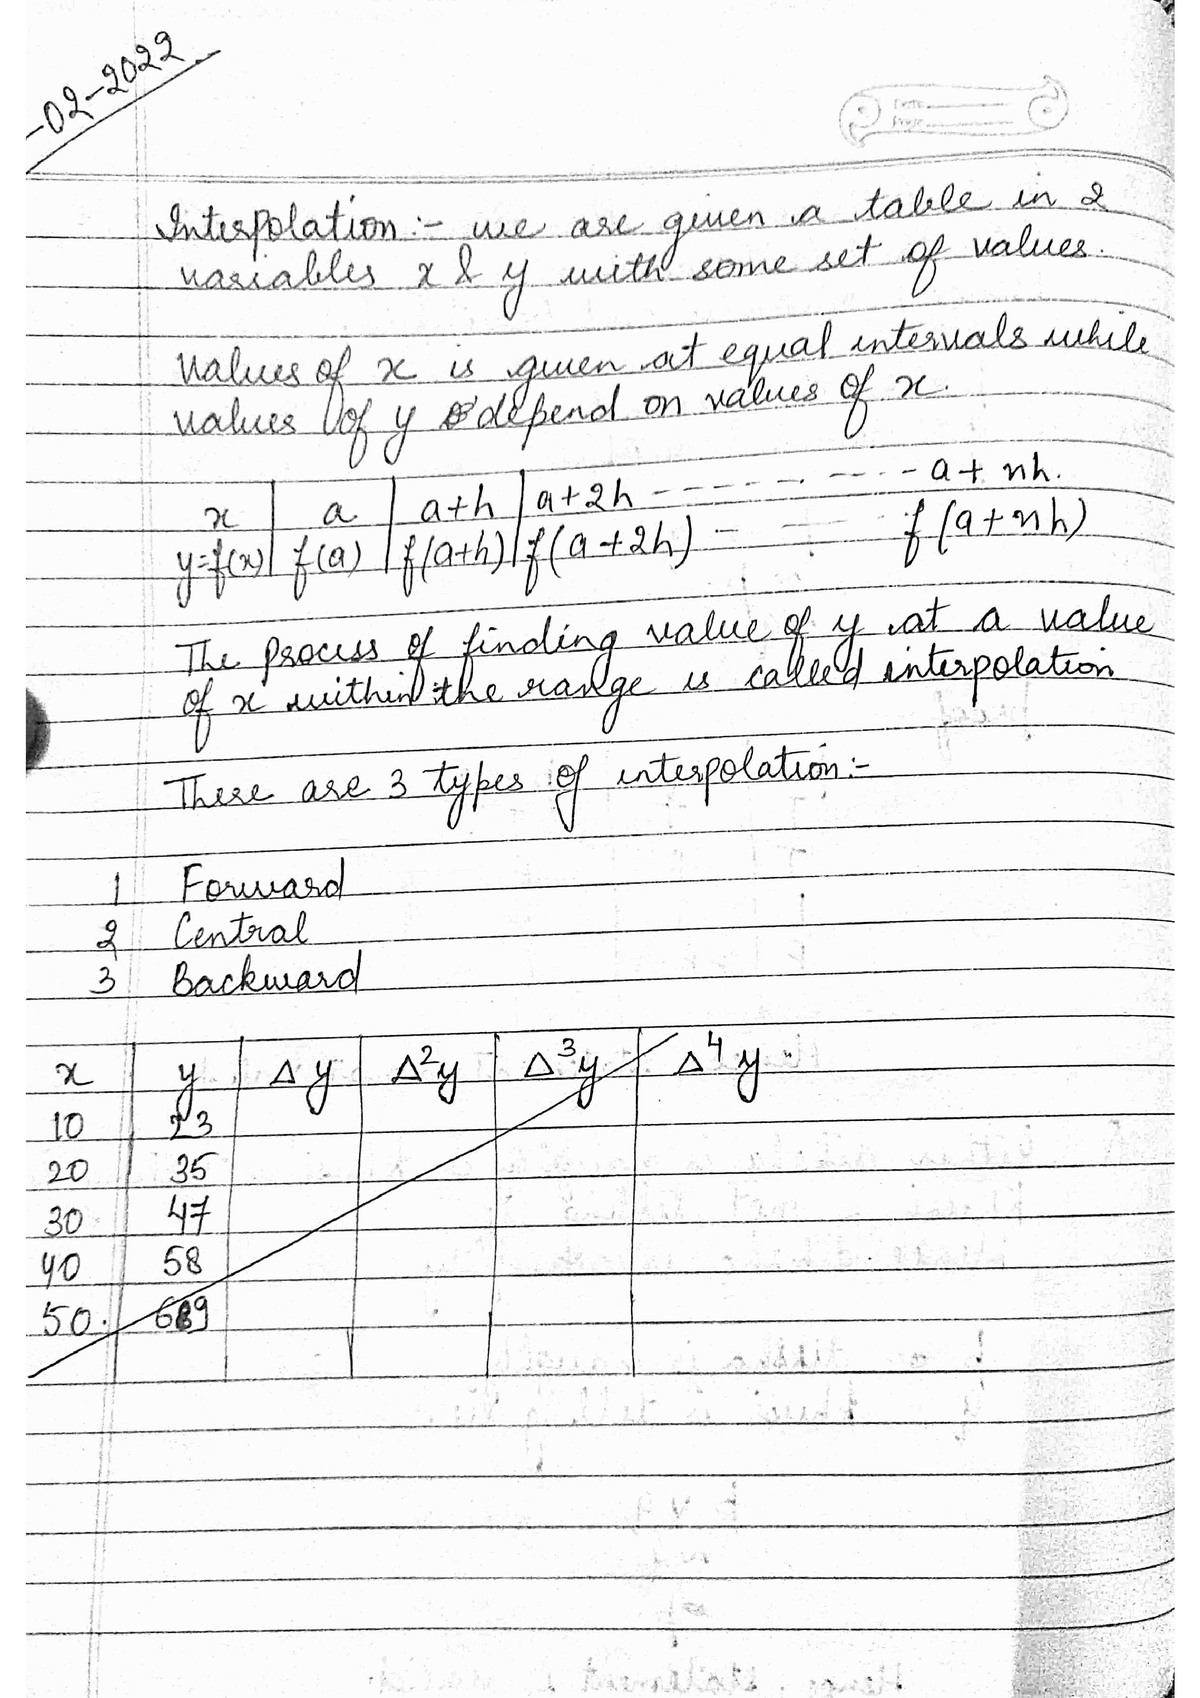 -02-2022
Date
Page
Interpolation:- we are given a table in 2
variables x & y with some set of values.
values of x is given at equal intervals while
values of y depend on values of x.
x | a | a+h | a+2h ---------- a+nh.
y=f(x) | f(a) | f(a+h) | f(a+2h) - --- f(a+nh)
The process of finding value of y at a value
of x within the range is called interpolation
There are 3 types of interpolation:-
1 Forward
2 Central
3 Backward
x | y | Δy | Δ²y | Δ³y | Δ⁴y
10 | 23
20 | 35
30 | 47
40 | 58
50.